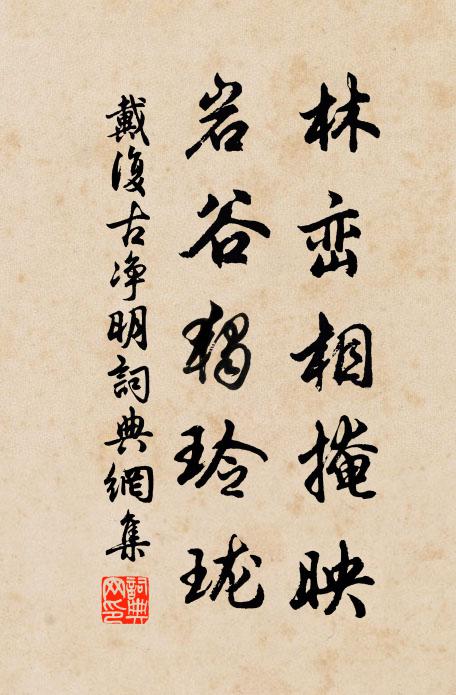 林峦相掩映
岩谷独玲珑
戴復古净明詞典網集
詞典網印